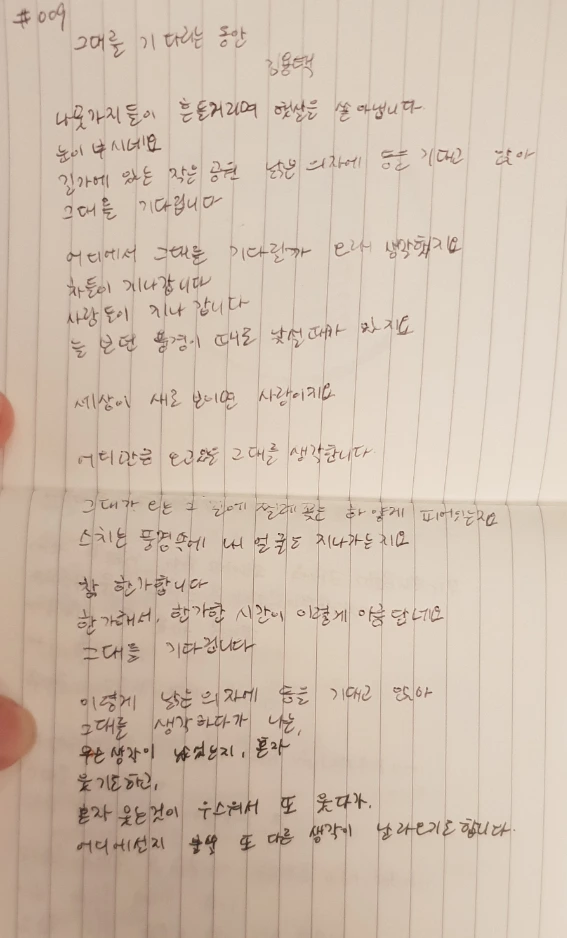 #009
그대를 기다리는 동안
김용택
나뭇가지들이 흔들거리며 햇살을 쏟아냅니다
눈이 부시네요
길가에 있는 작은 공원 낡은 의자에 등을 기대고 앉아
그대를 기다립니다
어디에서 그대를 기다릴까 오래 생각했지요
차들이 지나갑니다
사람들이 지나 갑니다
늘 보던 풍경이 때로 낯설 때가 있지요
세상이 새로 보이면 사랑이지요
어디만큼 오고있을 그대를 생각합니다
그대가 오는 그 길에 찔레꽃은 하얗게 피어있는지요
스치는 풍경속에 내 얼굴도 지나가는지요
참 한가합니다
한가해서, 한가한 시간이 이렇게 아름답네요
그대를 기다립니다
이렇게 낡은 의자에 등을 기대고 앉아
그대를 생각하다가 나는,
무슨생각이 났었는지, 혼자
웃기도하고,
혼자 웃는것이 우스워서 또 웃다가.
어디에선지 불쑥 또 다른 생각이 날라오기도합니다.